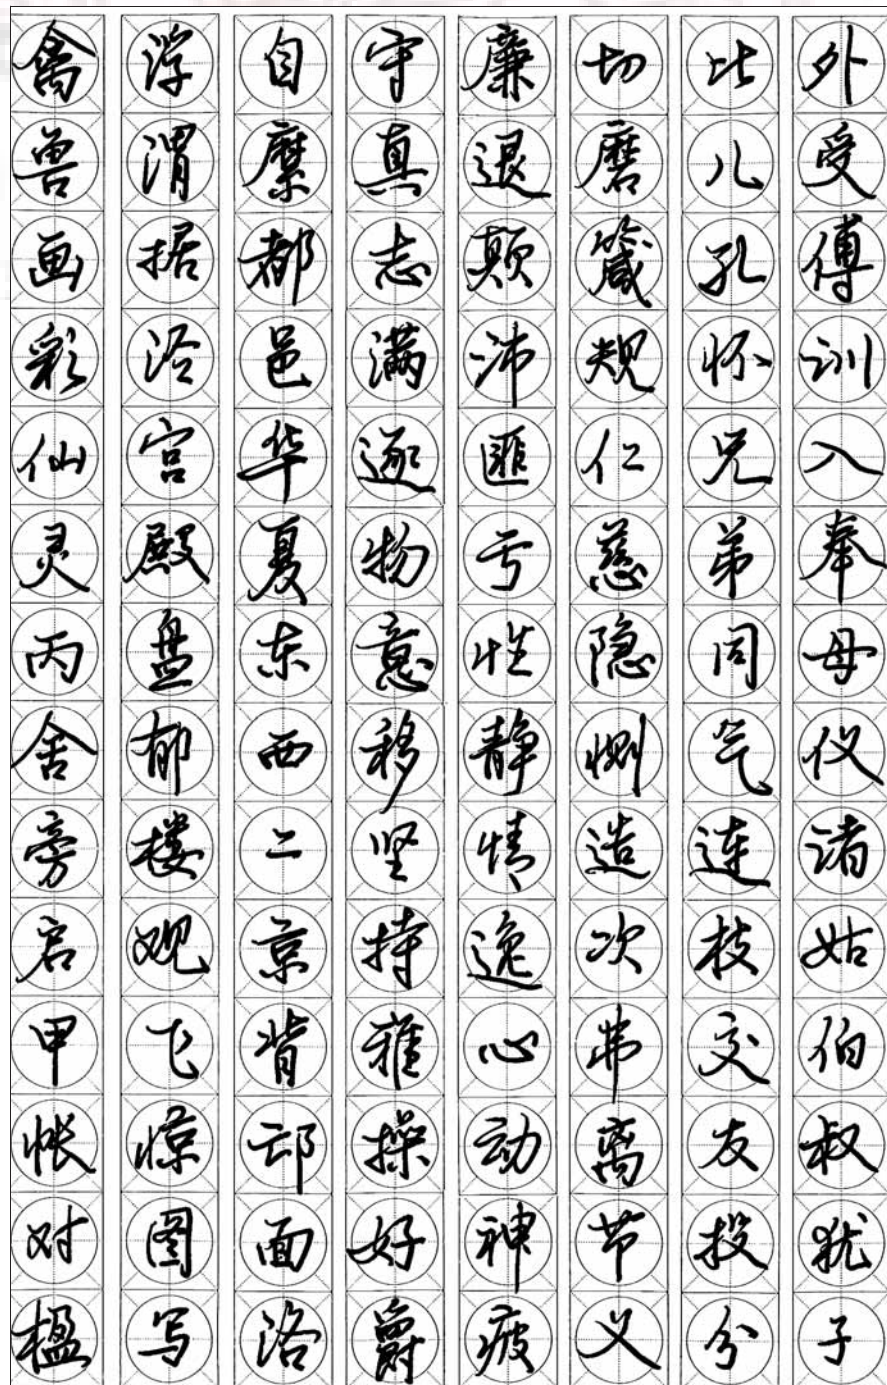 外受傅训入奉母仪诸姑伯叔犹子
比儿孔怀兄弟同气连枝交友投分
切磨箴规仁慈隐恻造次弗离节义
廉退颠沛匪亏性静情逸心动神疲
守真志满逐物意移坚持雅操好爵
自縻都邑华夏东西二京背邙面洛
浮渭据泾宫殿盘郁楼观飞惊图写
禽兽画彩仙灵丙舍旁启甲帐对楹